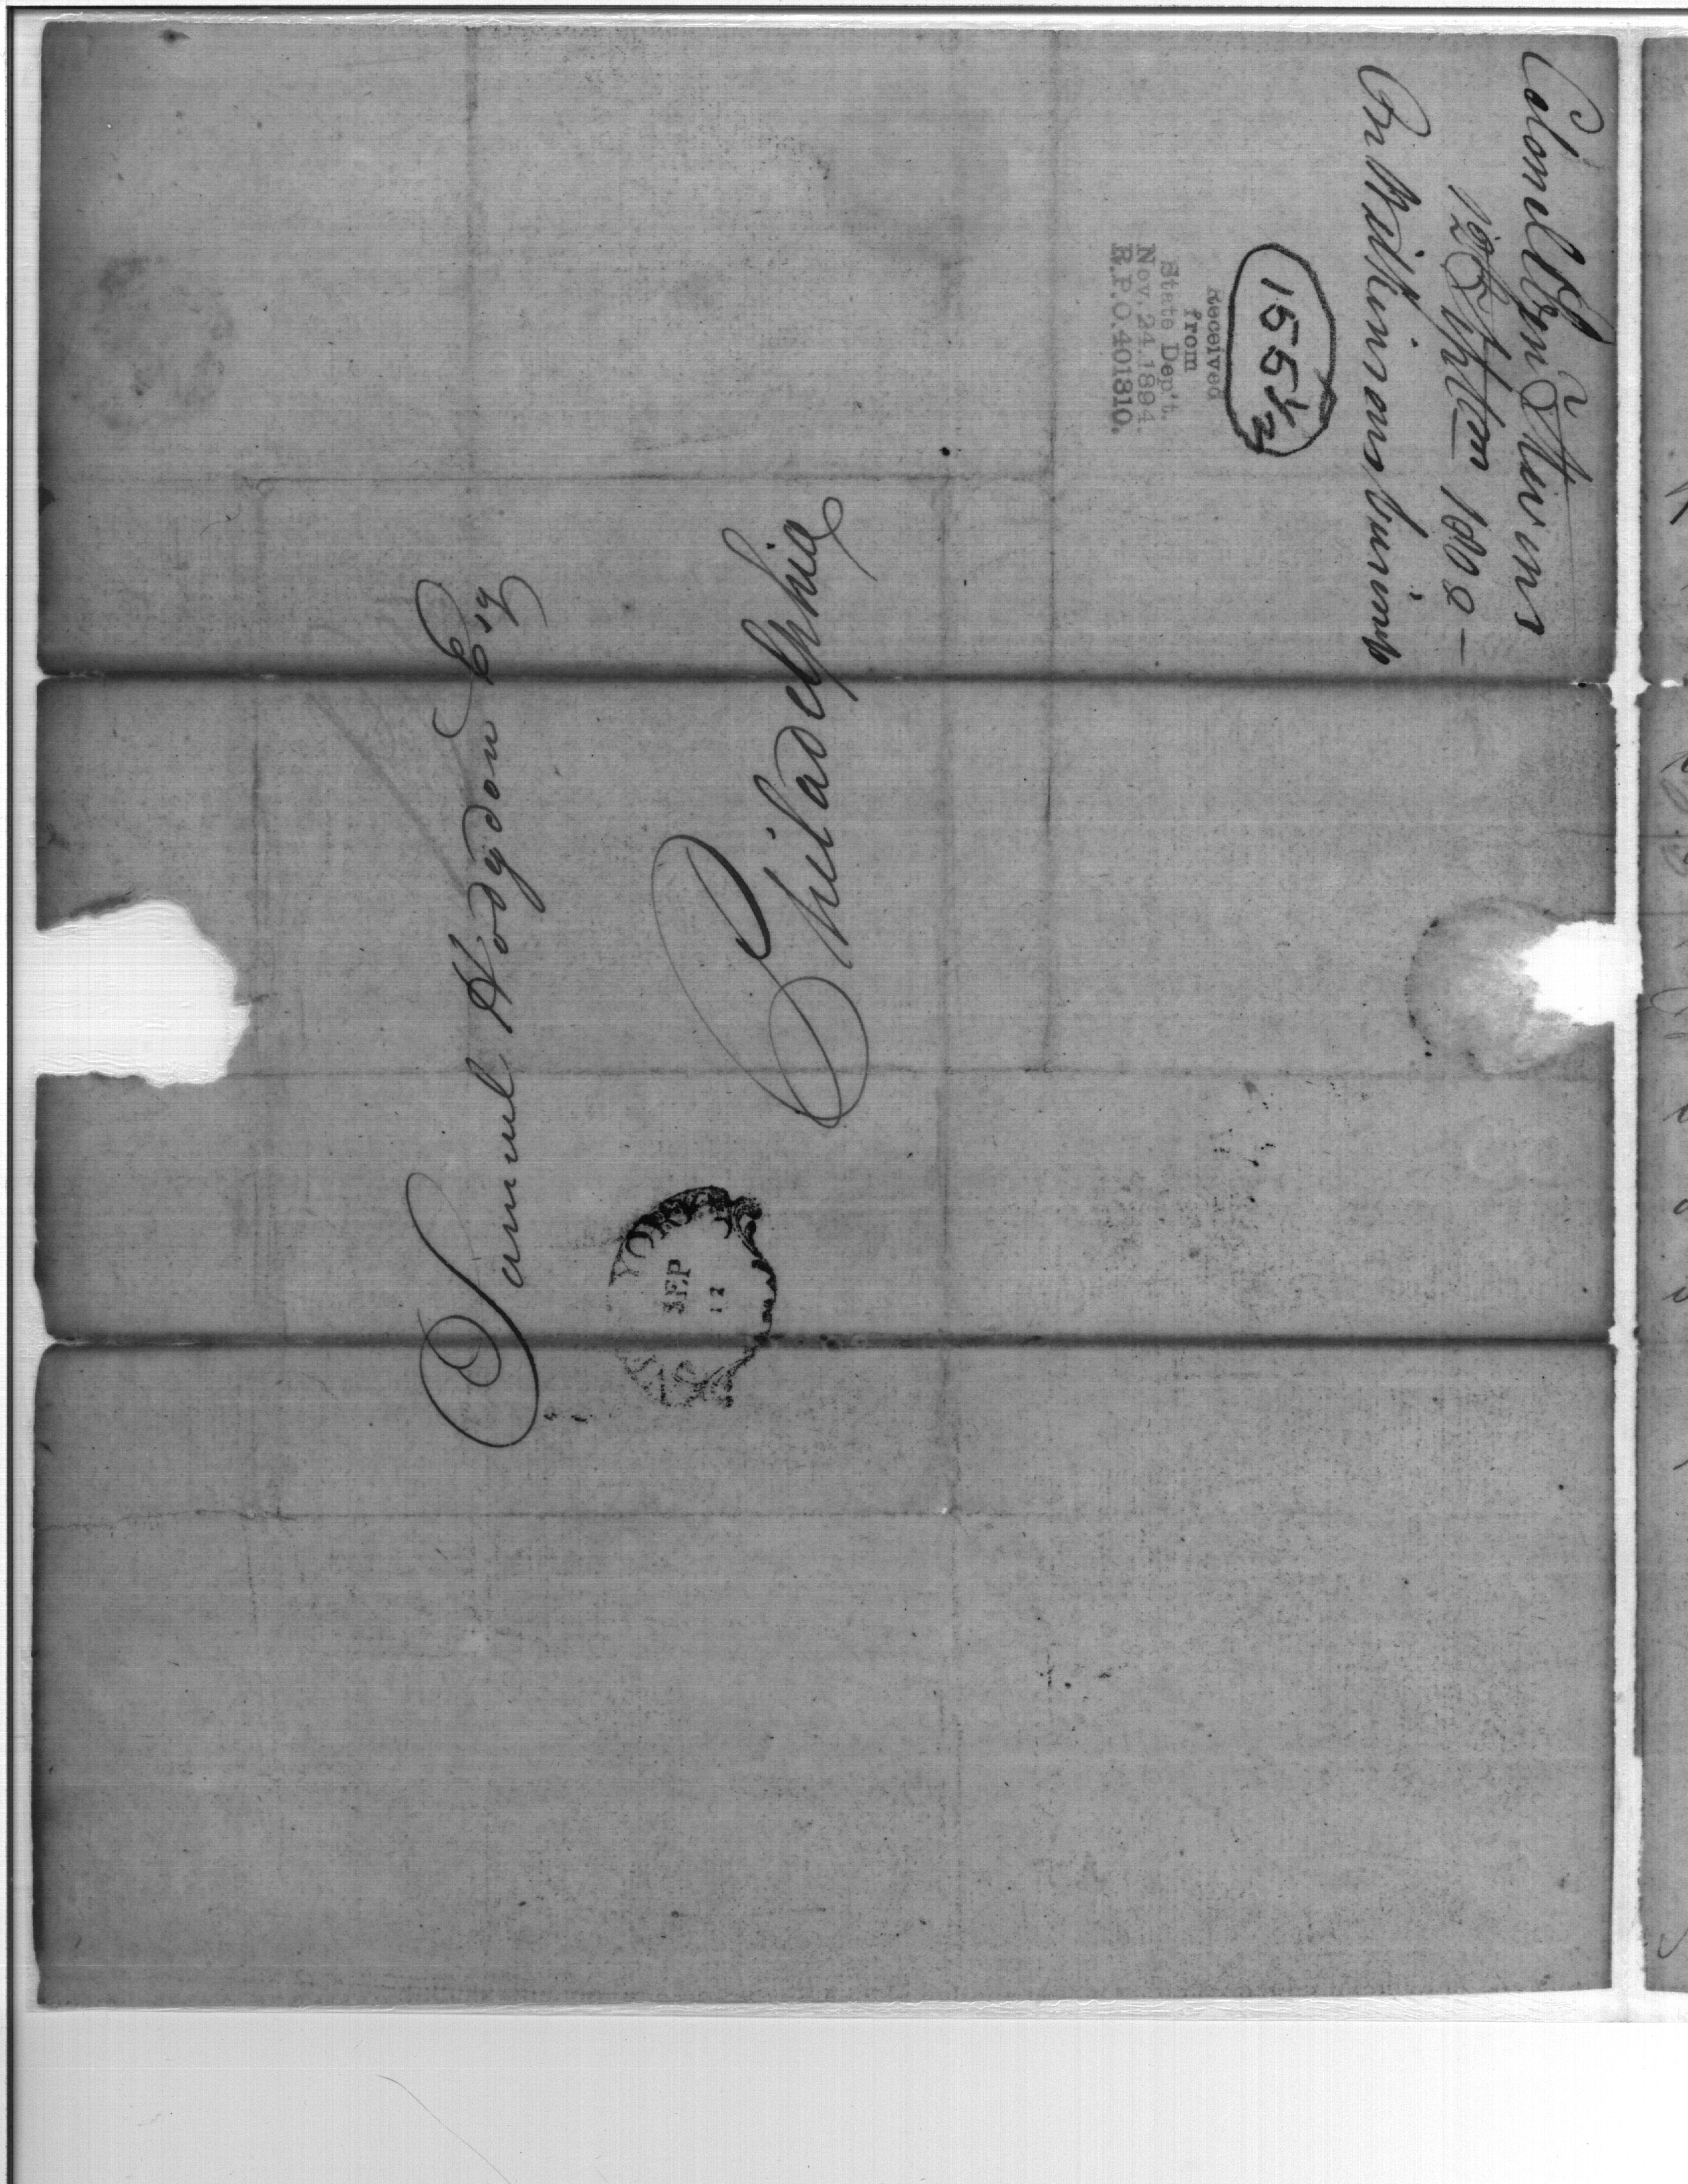 Colonel Wm Stevens
12th Septem 1802 —
On Wilkinsons business
155 1/2
Received
from
State Dep't.
Nov. 24, 1894.
R.P.O. 401310.
Samuel Hodgdon Esq
Philadelphia
YORK
SEP
12